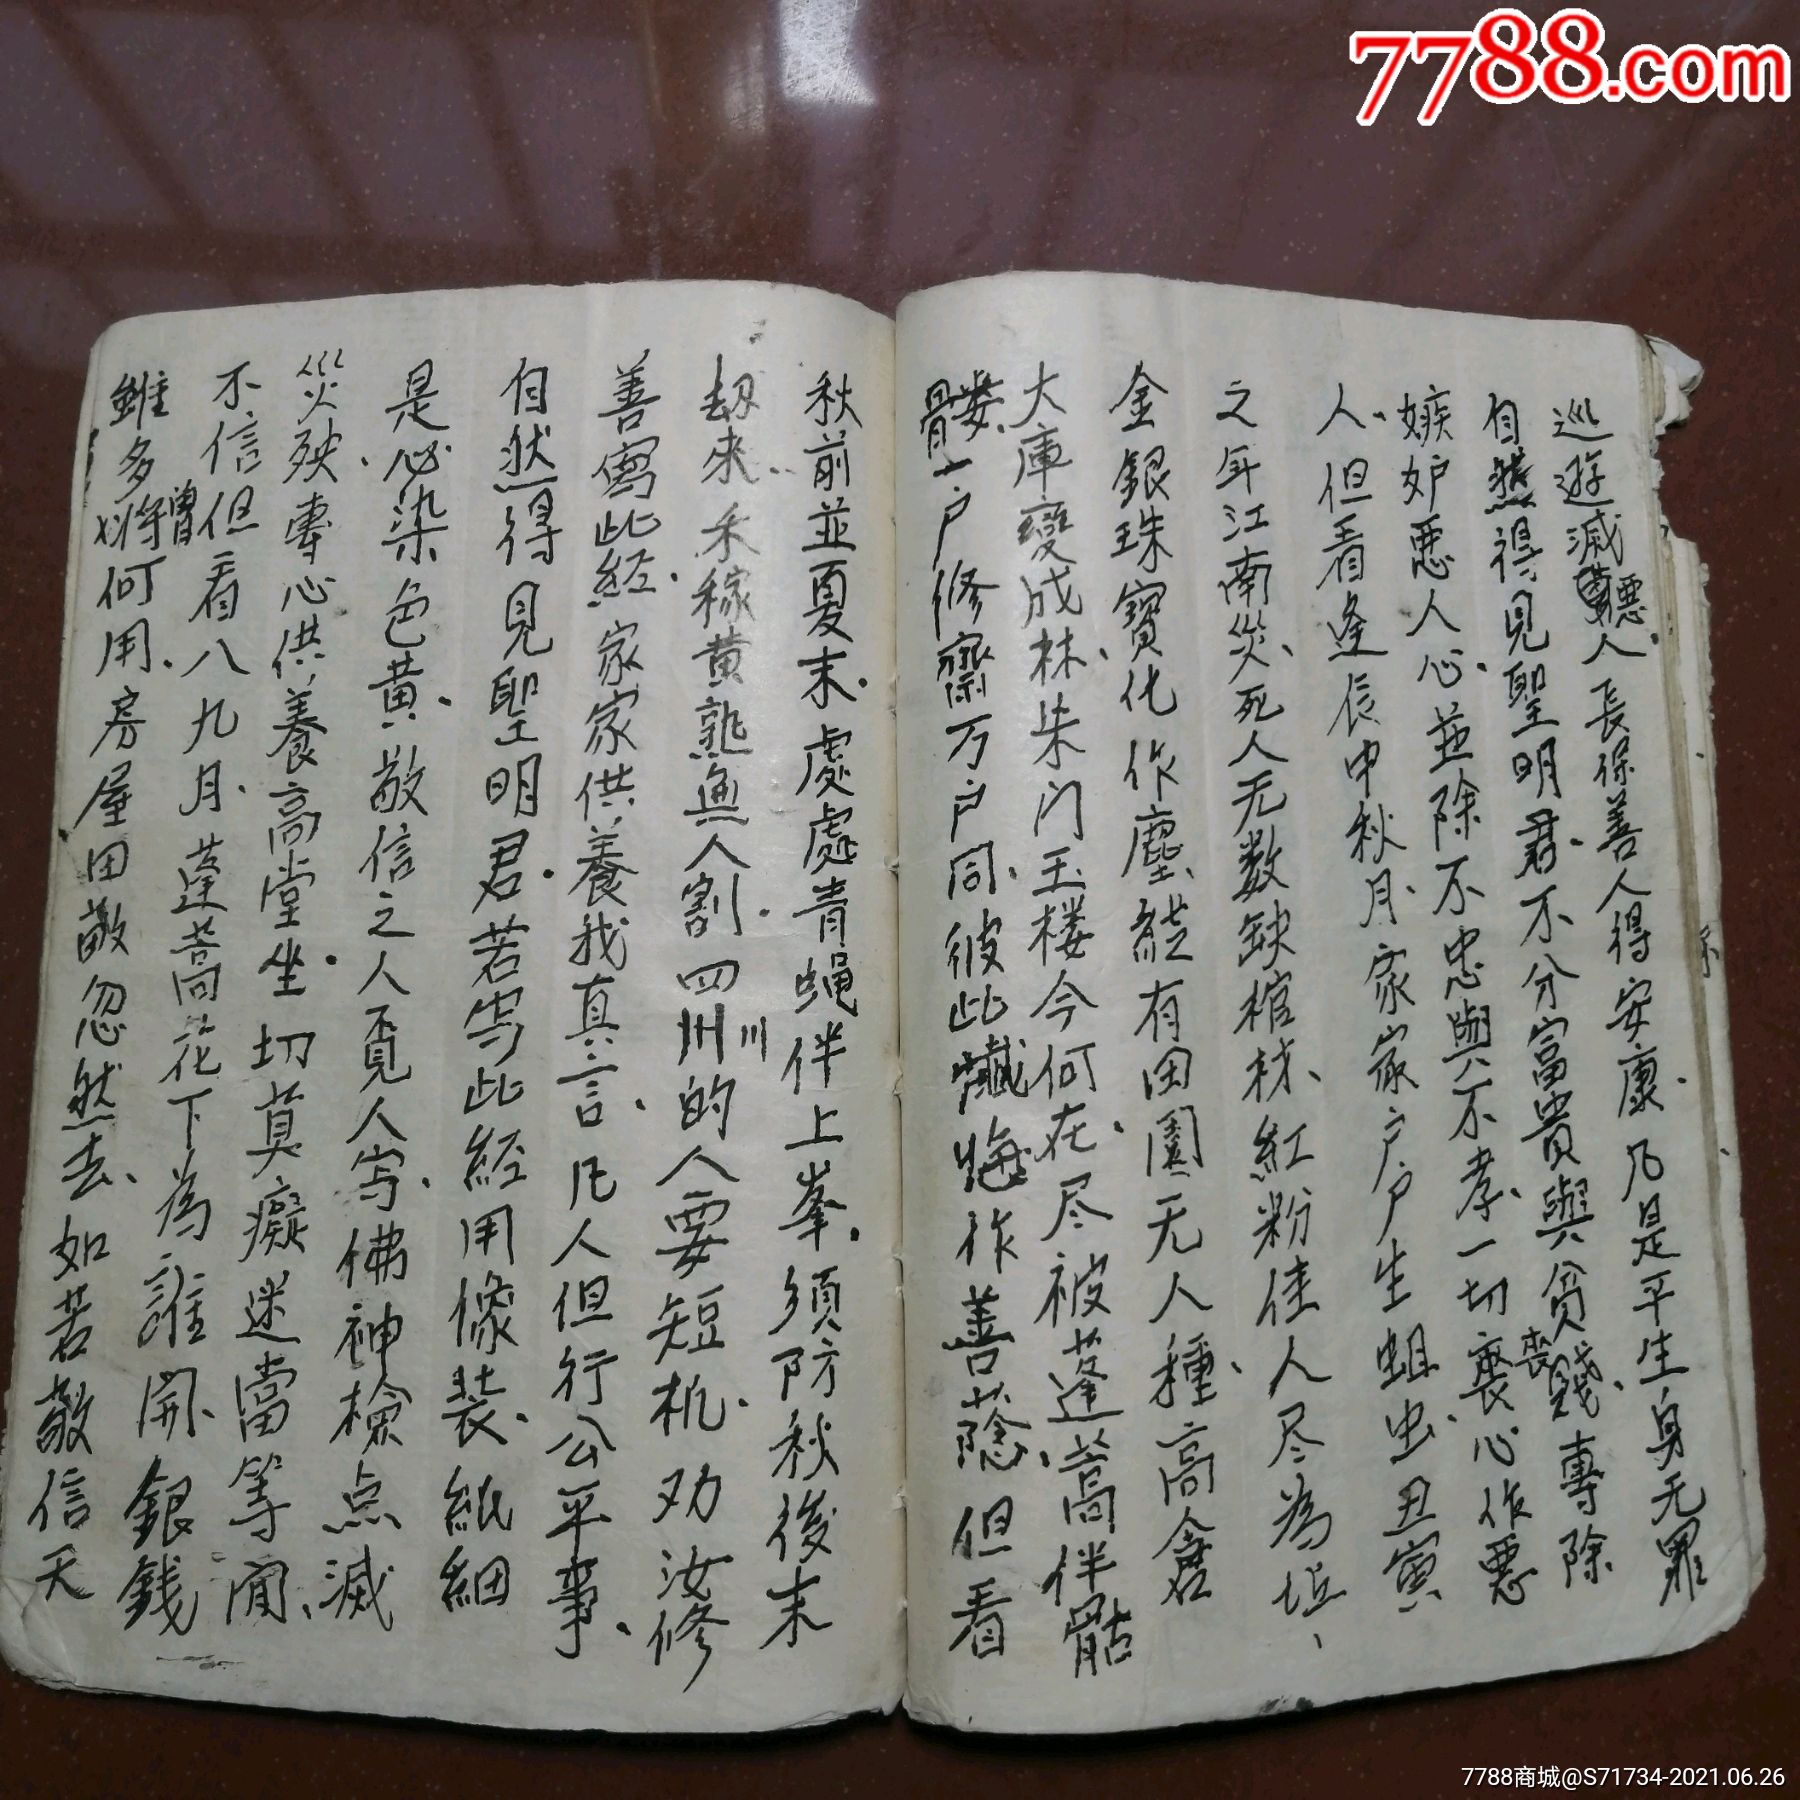 7788.com
巡遊滅惡人長得善人得安康凡是平生身无罪
自然得見聖明君不分富貴與貧賤專除
嫉妒惡人心並除不忠與不孝一切喪心作惡
喪
人但看逢辰申秋月家家户户生蛆虫丑寅
之年江南災死人无数缺棺材紅粉佳人尽為坵
金銀珠寶化作塵縱有田園无人種高倉
大庫變成林朱门玉楼今何在尽被蓬蒿伴骷
髅一户修齋万户同彼此懺悔作善蔭但看
秋前並夏末處處青蝇伴上峯須防秋後末
劫來禾稼黄熟無人割四川的人要短机劝汝修
川
善寫此经家家供養我真言凡人但行公平事
自然得見聖明君若写此經用像装紙細
是必染色黄敬信之人覓人写佛神檢点滅
災殃專心供養高堂坐切莫癡迷當等闲
不信但看八九月蓬蒿花下為誰開銀錢
雖多將何用房屋田敬忽然去如若敬信天
曾
7788商城@S71734-2021.06.26